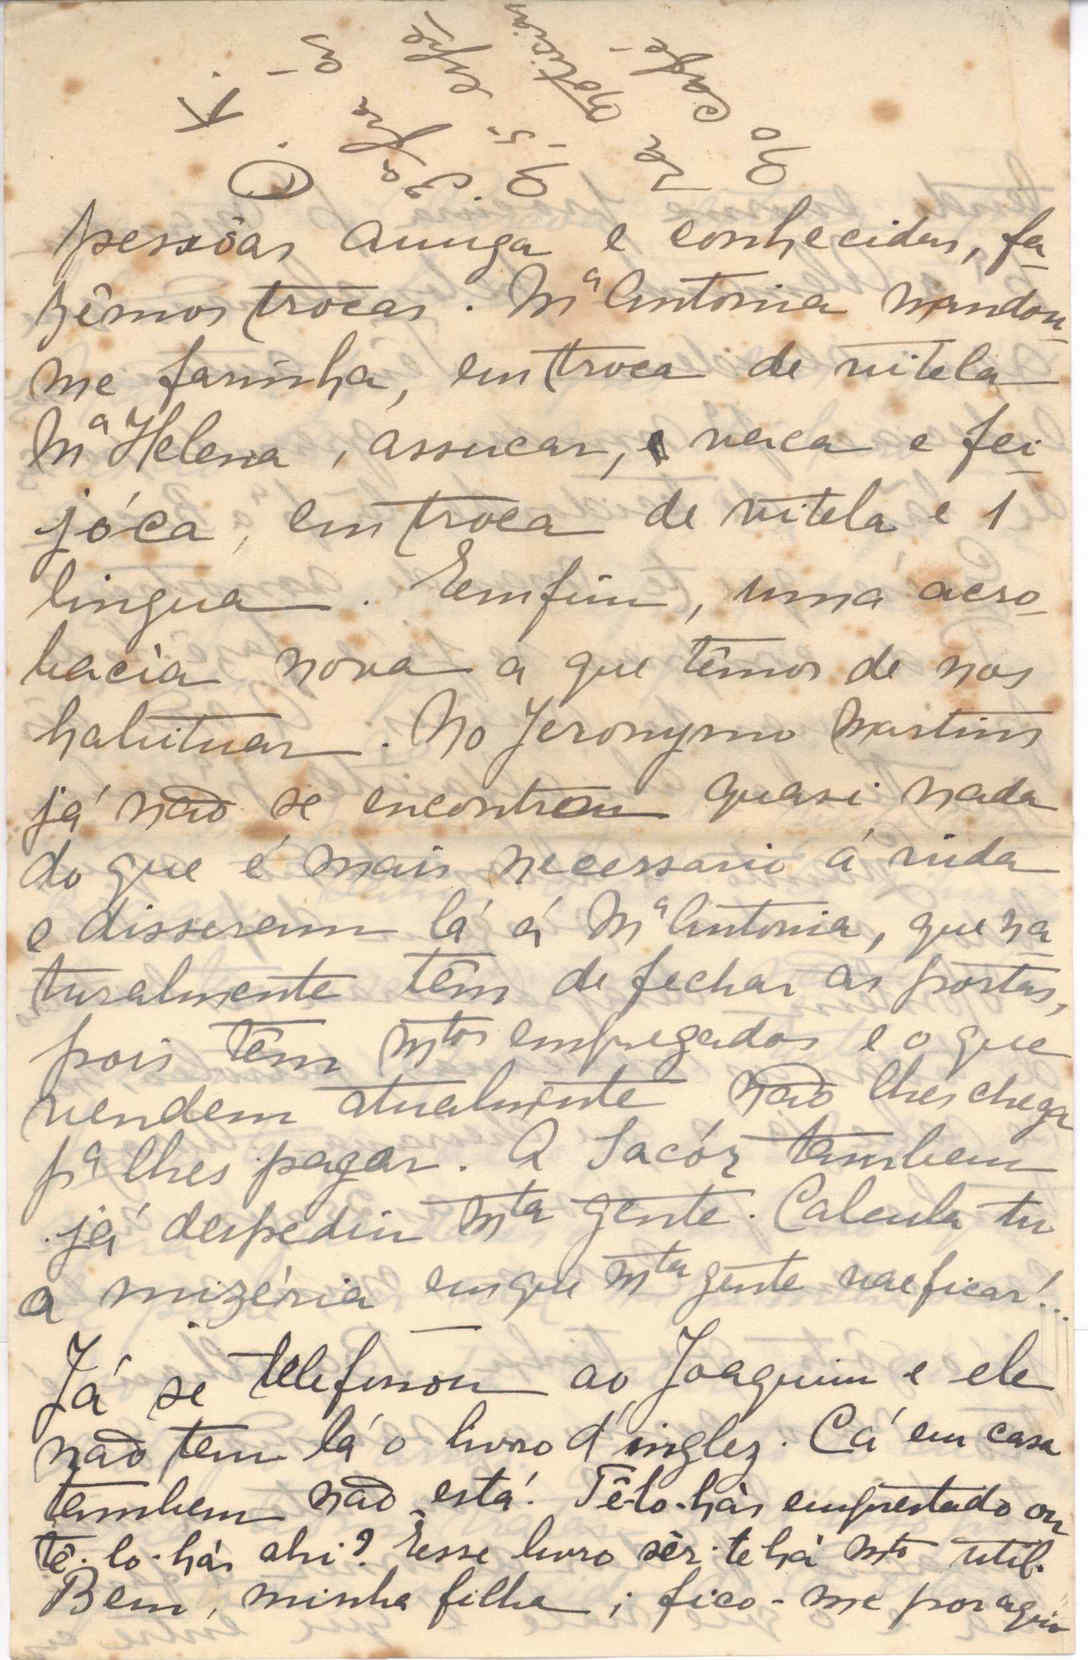 pessôas amiga e conhecidas, fa-
zêmos trocas. Mª Antonia mandou-
me farinha, em troca de vitela
Mª Helena, assucar, vaca e fei-
jóca, em troca de vitela e 1
lingua. Emfim, uma acro-
bacia nova a que têmos de nos
habituar. No Jeronymo Martins
já não se encontram quasi nada
do que é mais necessario á vida
e disseram lá á Mª Antonia, que na-
turalmente têm de fechar as portas,
pois têm mtos empregados e o que
vendem atualmente não lhes chega
pª lhes pagar. A Sacór tambem
já despediu mta gente. Calcula tu
a mizéria em que mta gente vae ficar!...
Já se telefonou ao Joaquim e ele
não tem lá o livro d'inglez. Cá em casa
tambem não está. Tê-lo-hás emprestado ou
tê-lo-hás ahi? Esse livro sêr-te-há mto util.
Bem, minha filha; fico-me por aqui